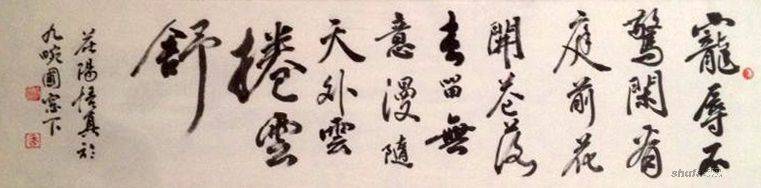 寵辱不
驚閑看
庭前花
開花落
去留無
意漫隨
天外雲
捲雲
舒
陽悟真於
九畹圃窓下